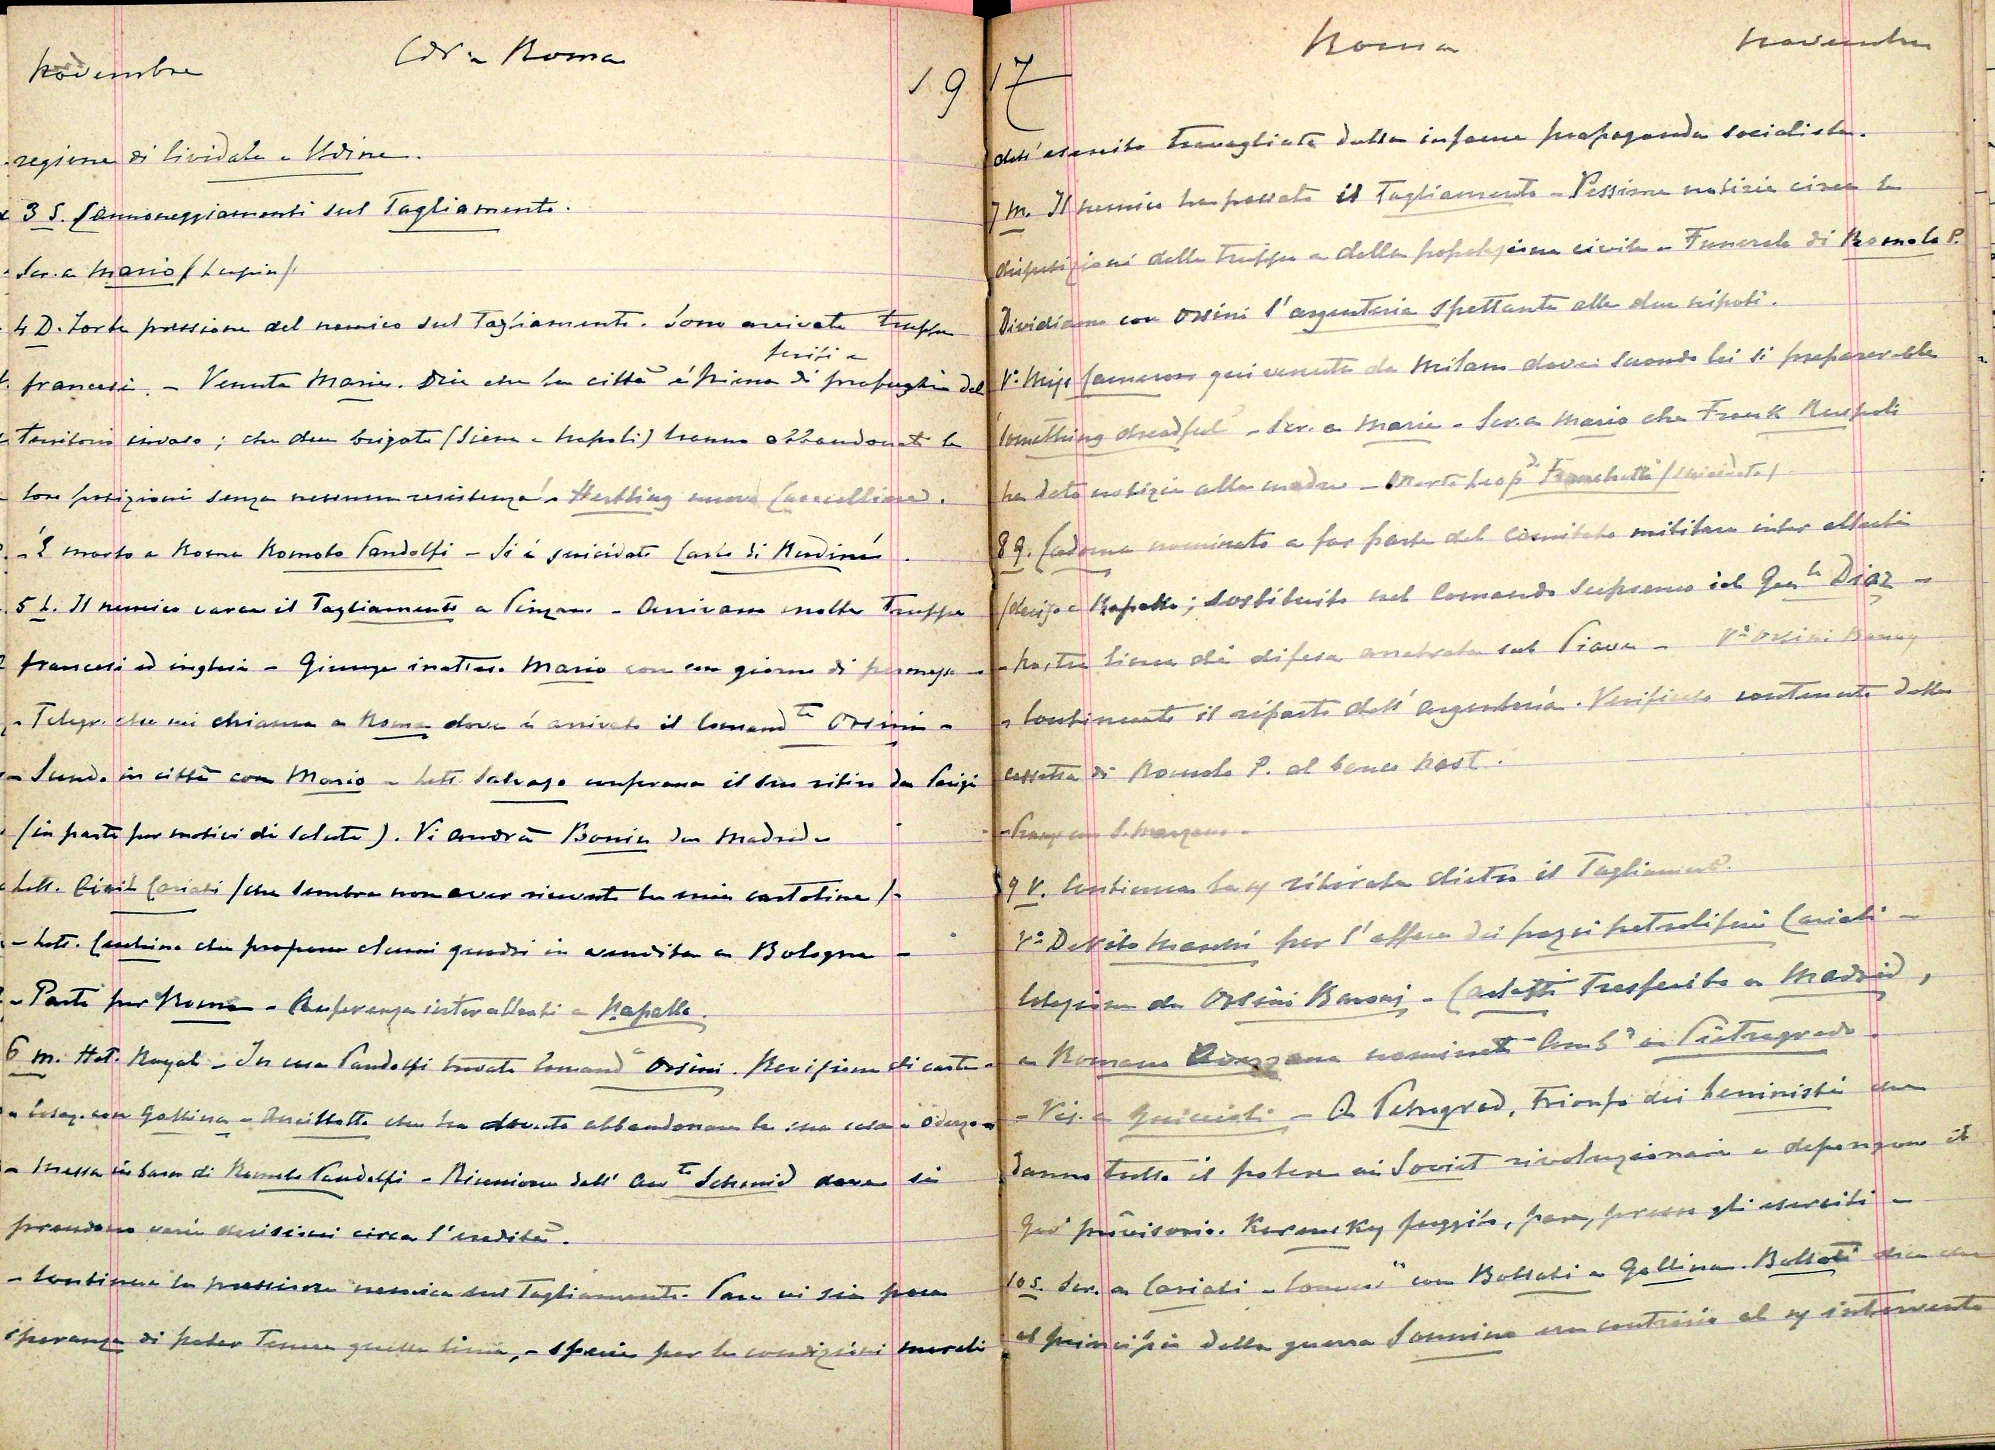 Novembre
Roma
19
regione di Cividale e Udine.
3 S. Cannoneggiamenti sul Tagliamento.
Scr. a Mario
4 D. Forte pressione del nemico sul Tagliamento. Sono arrivate truppe
feriti e
francesi. – Venuta Maria. Dice che la città è piena di profughi del
territorio invaso; che due brigate (Siena e Napoli) hanno abbandonato le
loro posizioni senza nessuna resistenza! – Hertling nuovo Cancelliere.
– È morto a Roma Romolo Pandolfi – Si è suicidato Carlo di Rudinì.
5 L. Il nemico varca il Tagliamento a Pinzano – Arrivano molte truppe
francesi ed inglesi – Giunge inatteso Mario con un giorno di permesso –
– Telegr. che mi chiama a Roma dove è arrivato il Comand.te Orsini –
– Scendo in città con Mario – Lett. Salvago conferma il suo ritiro da Parigi
(in parte per motivi di salute). Vi andrà Bonin da Madrid –
Lett. Cariati (che sembra non aver ricevuto le mie cartoline) –
– Lett. che propone alcuni quadri in vendita a Bologna –
– Parto per Roma – Conferenza interalleati a Rapallo.
6 M. Hot. Royal – In casa Pandolfi trovato Comand.te Orsini. Revisione di carte –
– Colaz. con Gallina – Ancillotto che ha dovuto abbandonare la sua casa a Oderzo –
– Messa in bara di Romolo Pandolfi – Riunione dall' Avv.to Schmid dove si
prendono varie decisioni circa l'eredità.
– Continua la pressione nemica sul Tagliamento. Pare vi sia poca
speranza di poter tenere quella linea, – specie per le condizioni morali
17
Roma
Novembre
dell'esercito travagliato dalla infame propaganda socialista.
7 M. Il nemico ha passato il Tagliamento – Pessime notizie circa le
disposizioni delle truppe e della popolazione civile – Funerale di Romolo P.
Dividiamo con Orsini l'argenteria spettante alle due nipoti.
V.o Miss Cameron qui venuta da Milano dove secondo lei si preparerebbe
"something dreadful" – Scr. a Maria – Scr. a Mario che Frank Ruspoli
ha dato notizie alla madre – Morte Leop.do Franchetti (suicidato)
8 G. Cadorna nominato a far parte del Comitato militare inter alleati
(deciso a Rapallo; sostituito nel Comando Supremo dal Gen.le Diaz –
– Nostra linea di difesa arretrata sul Piave – V.o Orsini Baroni
– Continuato il riparto dell'argenteria. Verificato contenuto della
cassetta di Romolo P. al banco Nast.
– Pranzo con S. Marzano –
9 V. Continua la ns/ ritirata dietro il Tagliamento.
V.o De Vito Maschi per l'affare dei pozzi petroliferi Cariati –
Colazione da Orsini Baroni – Carlotti trasferito a Madrid,
e Romano Avezzana nominato Amb.re a Pietrogrado.
– Vis. a Guiccioli – A Petrograd, trionfo dei Leninisti che
danno tutto il potere ai Soviet rivoluzionari e depongono il
Gov.o provvisorio. Kerensky fuggito, pare, presso gli eserciti –
10 S. Scr. a Cariati – Convers.ne con Bollati e Gallina. Bollati dice che
al principio della guerra Sonnino era contrario al ns/ intervento